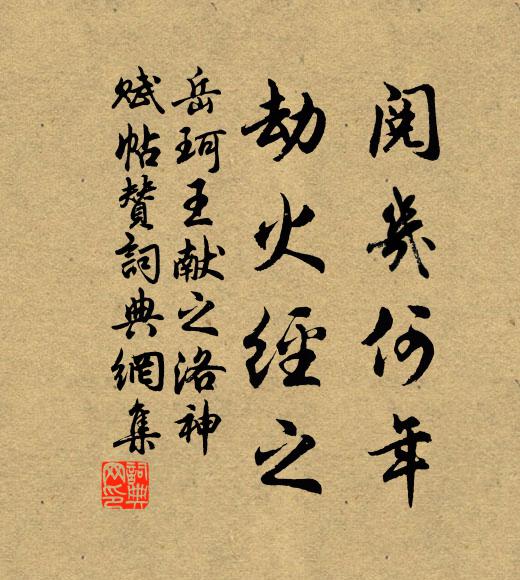 閱幾何年
劫火經之
岳珂王献之洛神
賦帖賛詞典網集
詞典網印